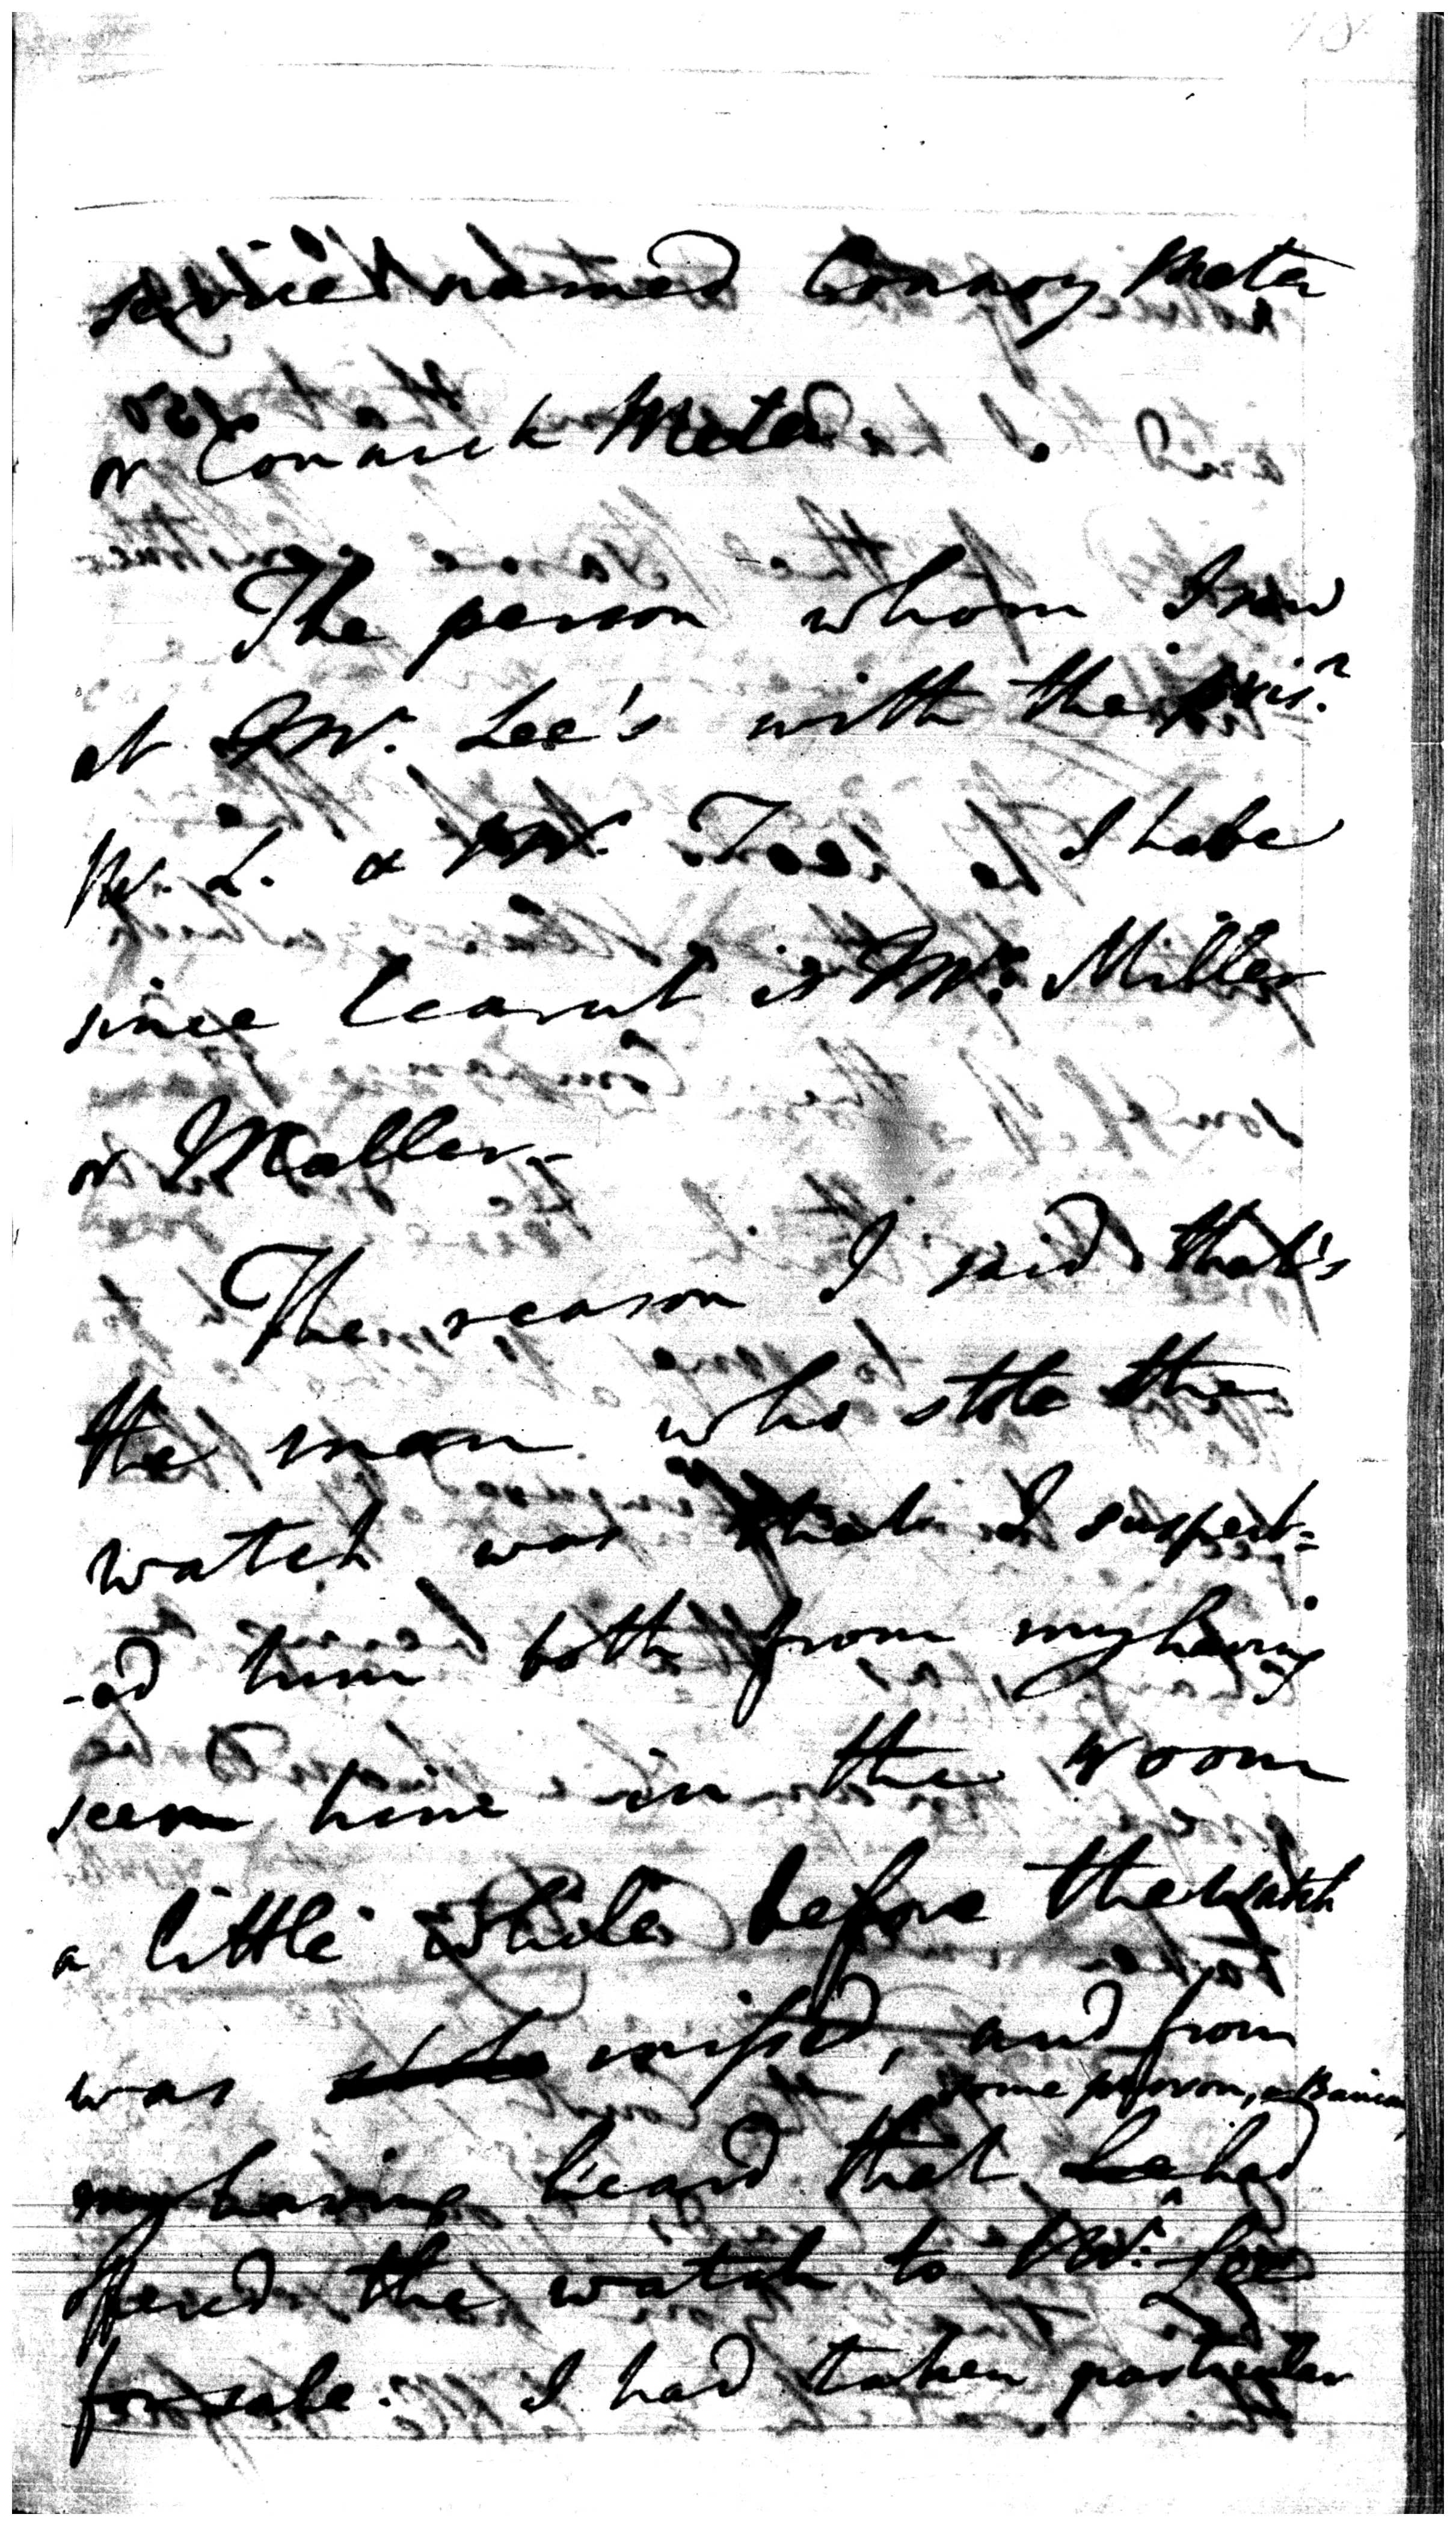 service named Connoy Meter
or Conanck Meter.
The person whom I saw
at Mr. Lee's with the pris.r
Mr. L. & Mr. T. I have
since learnt is Mr. Miller
or Maller.-
The reason I said that's
the man who stole the
watch was that I suspect=
-ed him both from my having
seen him in the room
a little while before the watch
was stole missed, and from
some person, a Banian,
my having heard that he had
offered the watch to Mr. Lee
for sale. I had taken particular